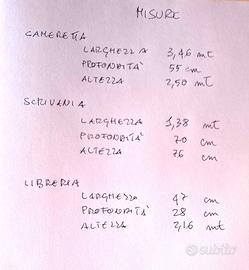 MISURE
CAMERETTA
LARGHEZZA 3,46 mt
PROFONDITÀ 55 cm
ALTEZZA 2,50 mt
SCRIVANIA
LARGHEZZA 1,38 mt
PROFONDITÀ 70 cm
ALTEZZA 76 cm
LIBRERIA
LARGHEZZA 47 cm
PROFONDITÀ 28 cm
ALTEZZA 2,16 mt
subito